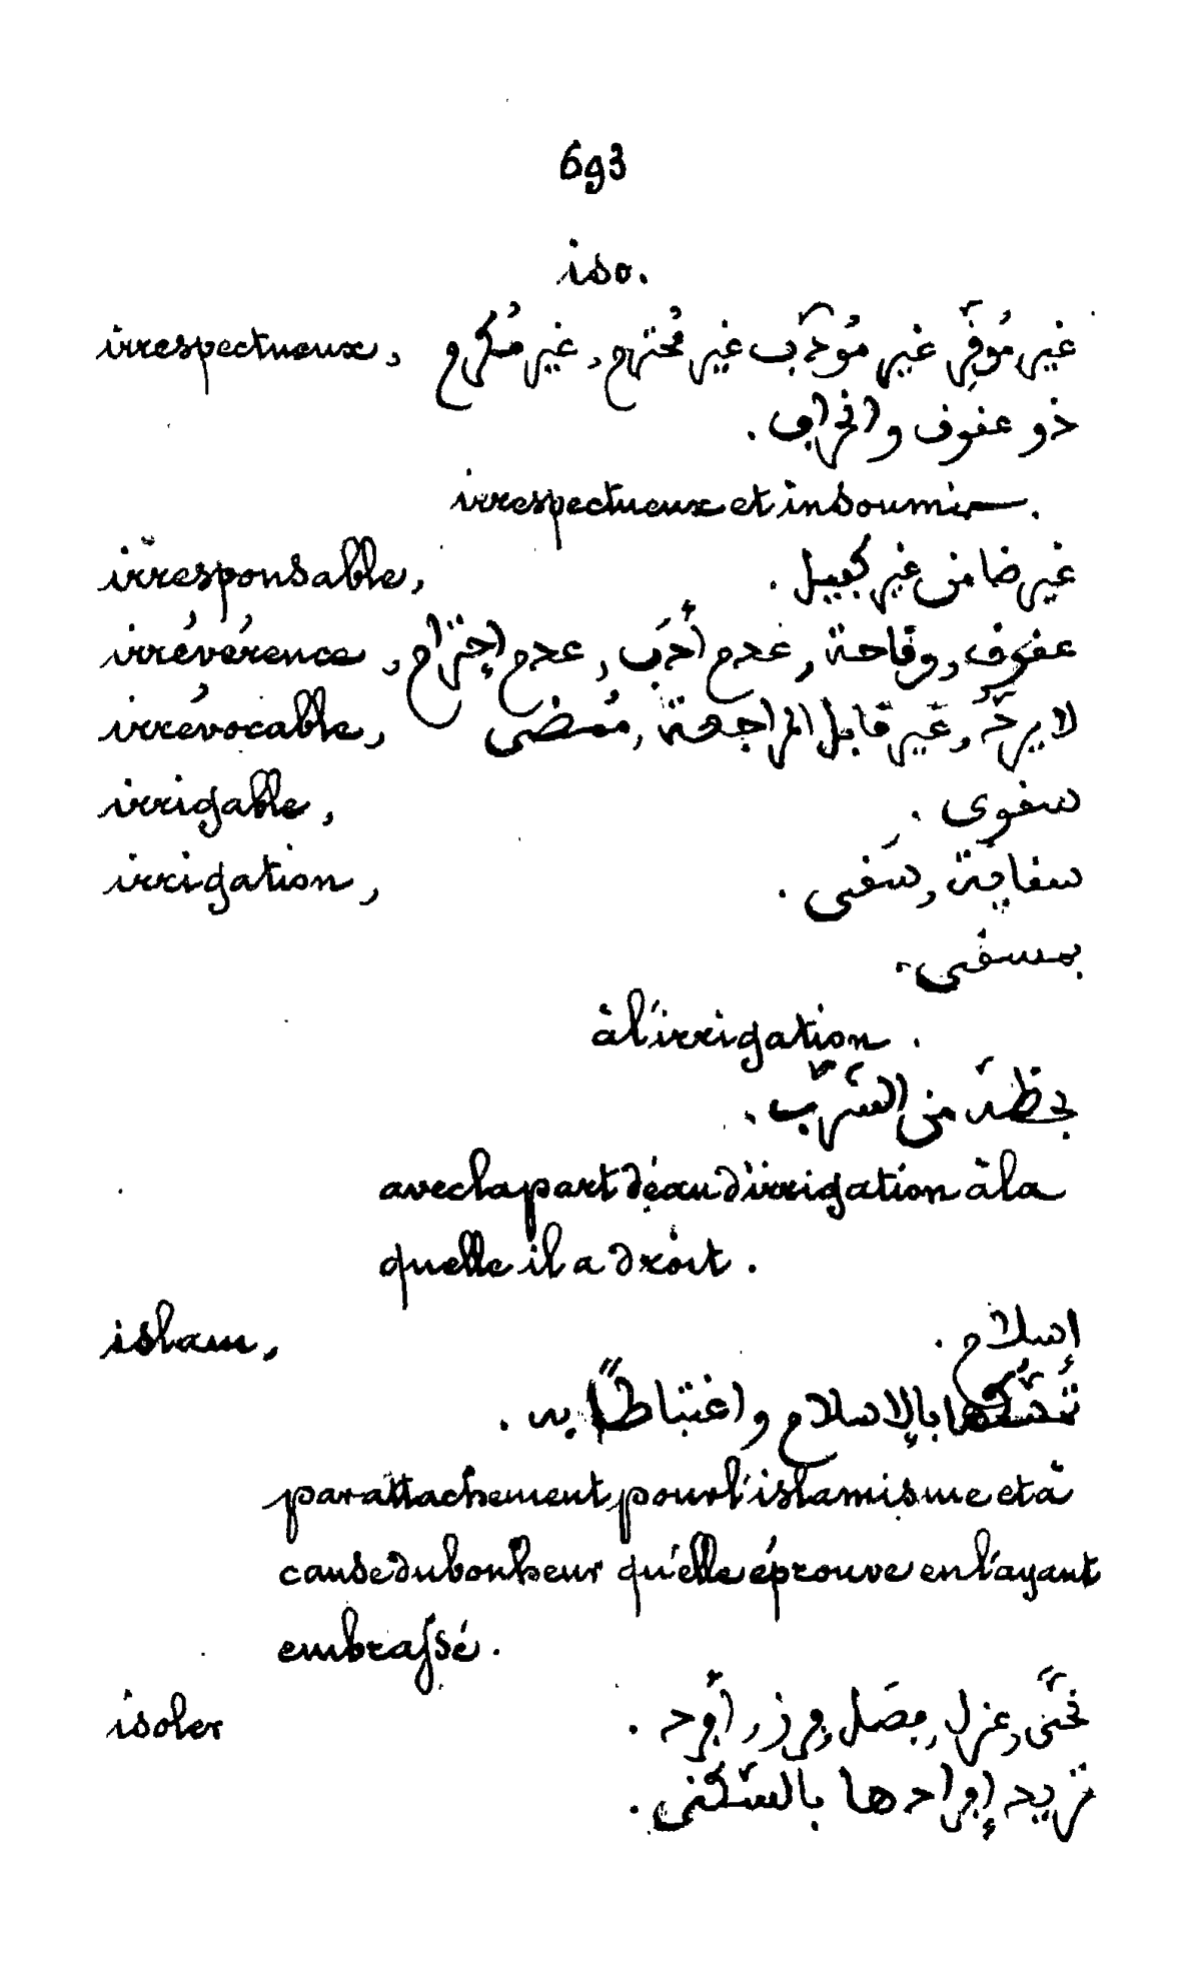 693
iso.
irrespectueux, غير مُوَقِّر غير مُؤدَّب غير مُحترم, غير مُكرم
ذو عقوق وانحراف.
irrespectueux et insoumis.
irresponsable, غير ضامن غير كفيل.
irrévérence, عقوق, وقاحة, عدم أدَب, عدم إحترام
irrévocable, لا يردّ, غير قابل المراجعة, مُمضى
irrigable, سقوى.
irrigation, سقاية, سَقى.
بمسقى.
à l'irrigation.
بحظّه من الشّرب.
avec la part d'eau d'irrigation à la
quelle il a droit.
islam, إسلام.
تمسّكُها بالإسلام واغتباطًا به.
par attachement pour l'islamisme et à
cause du bonheur qu'elle éprouve en l'ayant
embrassé.
isoler نحّى, عزل, فصَل, فرز, أفرد.
تريد إفرادها بالسّكنى.